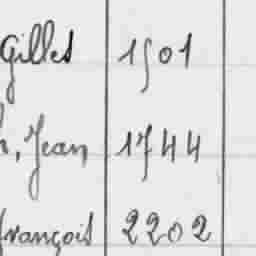 Gilles 1501
n, Jean 1744
François 2202